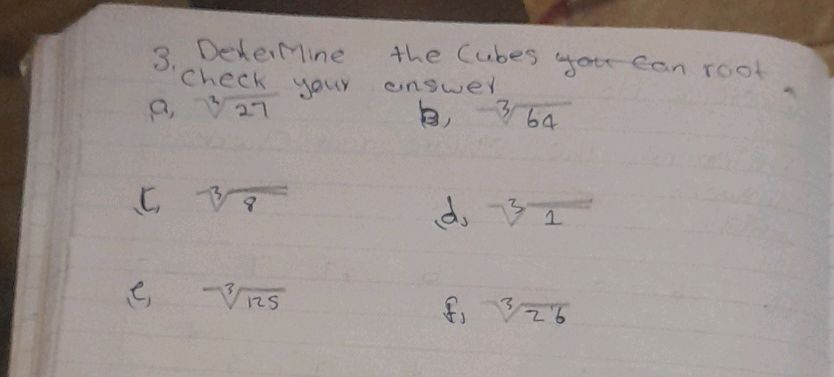 3. Determine the Cubes you can root.
Check your answer
a, ∛27 b, ∛64
c, ∛8 d, ∛1
e, ∛125 f, ∛26